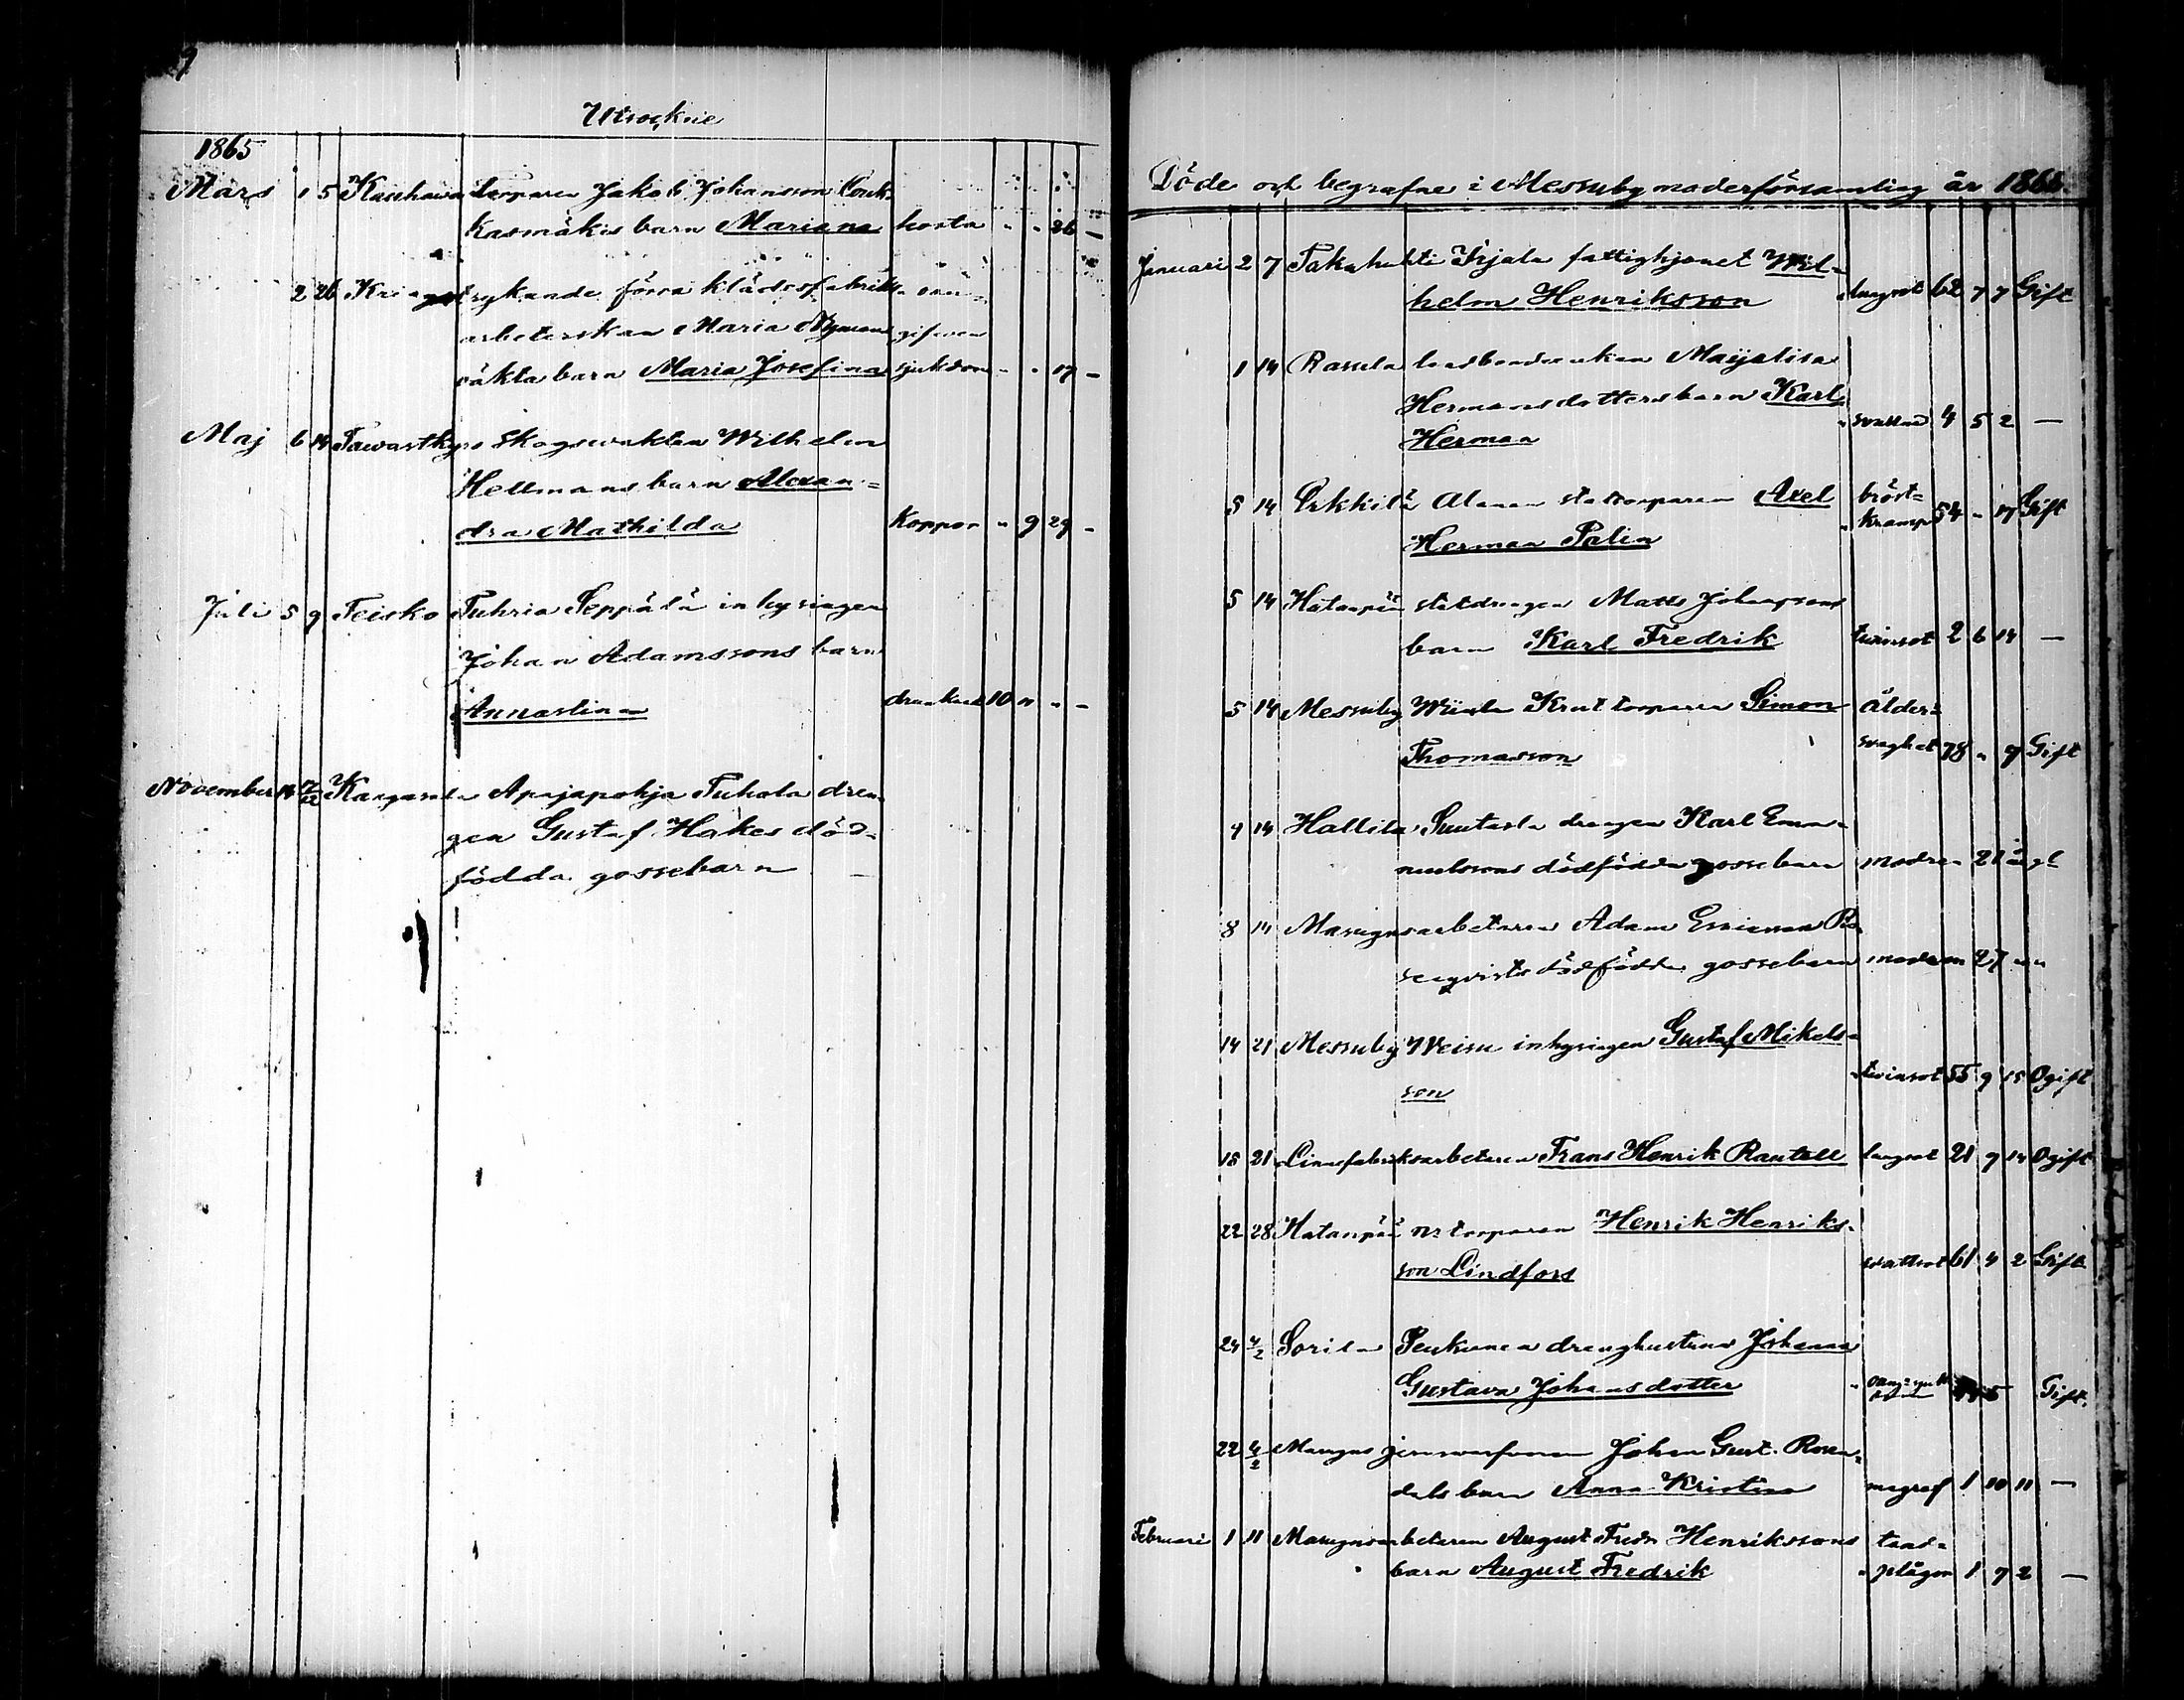 Utsocknie
1865
Mars 1 5 Kauhava Torparen Jakob Johansson
Kasmäkis barn Mariana hosta - - 26 -
2 26 kringstrykande förra klädesfabriks- oan-
arbeterskan Maria Nymans gifven
oäkta barn Maria Josefina sjukdom - - 17 -
Maj 6 14 Tawastkyro Skogsvakten Wilhelm
Hellmans barn Alexan=
dra Mathilda Koppor - 9 29 -
Juli 5 9 Teisko Tuhria Seppälä inhysingen
Johan Adamssons barn
Annastina drunknad 10 " - -
November 14 Kangasala Apajapohja Tuhola dren-
gen Gustaf Hakes död-
födda gossebarn —
Döde och begrafne i Messuby moderförsamling år 1866.
Januari 2 7 Takahuhti Irjala fattighjonet Wil-
helm Henriksson lungsot 62 7 7 Gift
1 14 Rasula landbondeenkan Maijalisa
Hermansdotters barn Karl
Herman 4 5 2 —
5 14 Erkkilä Alanen statstorparen Axel bröst=
Herman Palin kramp 54 - 17 Gift
5 14 Hatanpää statdrengen Matts Johanssons
barn Karl Fredrik tvinsot 2 6 14 —
5 14 Messuby Wiiala Krut torparen Simon ålder=
Thomasson svaghet 78 - 9 Gift
4 14 Hallila Suntasla drengen Karl Ema-
nuelssons dödfödda gossebarn modren 21
8 14 Masugnsarbetaren Adam Ro-
senqvists dödfödda gossebarn modren 27
14 21 Messuby Weisu inhysingen Gustaf Mikels-
son tvinsot 55 9 15 Ogift
18 21 Linnefabriksarbetaren Frans Henrik Rantell lungsot 21 9 14 Ogift
22 28 Hatanpää torparen Henrik Henriks-
son Lindfors vattsot 61 4 2 Gift
24 4/2 Sorila Penkunen drenghustrun Johanna
Gustava Johansdotter Gift.
22 4/2 Masugns Johan Gust. Rosen-
dals barn Anna Kristina magref 1 10 11 —
Februari 1 11 Masugnsarbetaren August Fredr Henrikssons tand-
barn August Fredrik plågor 1 7 2 —